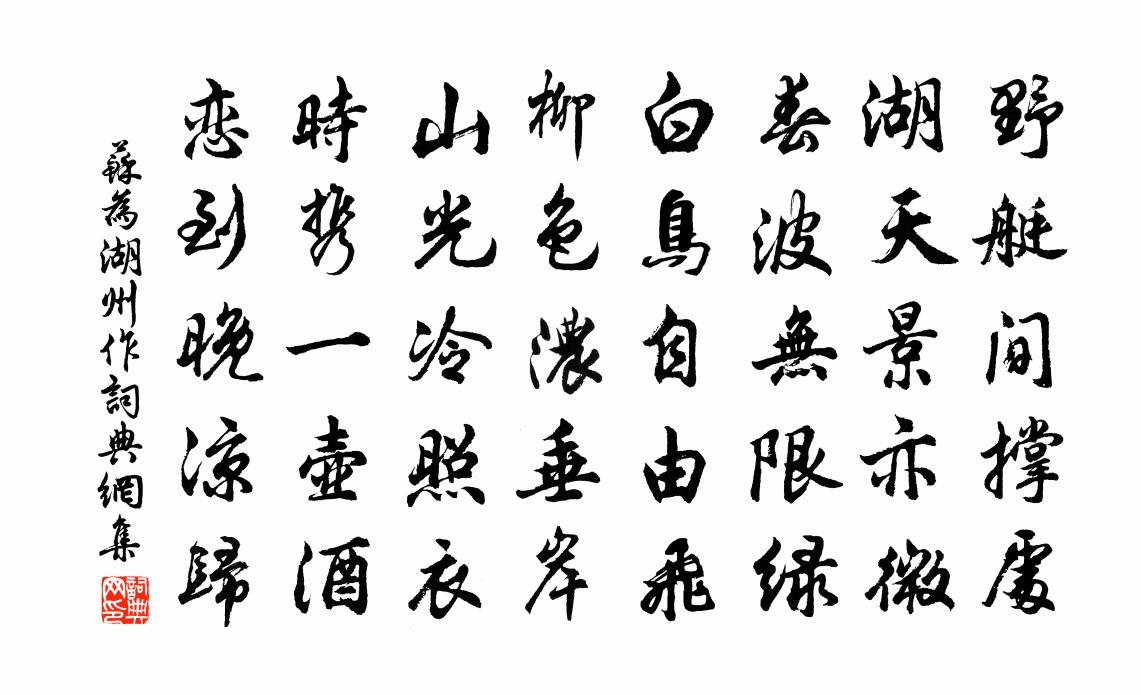 野艇间撑處
湖天景亦微
春波無限绿
白鳥自由飛
柳色濃垂岸
山光冷照衣
時携一壺酒
恋到晚凉歸
蘇為湖州作詞典網集
詞典
网印